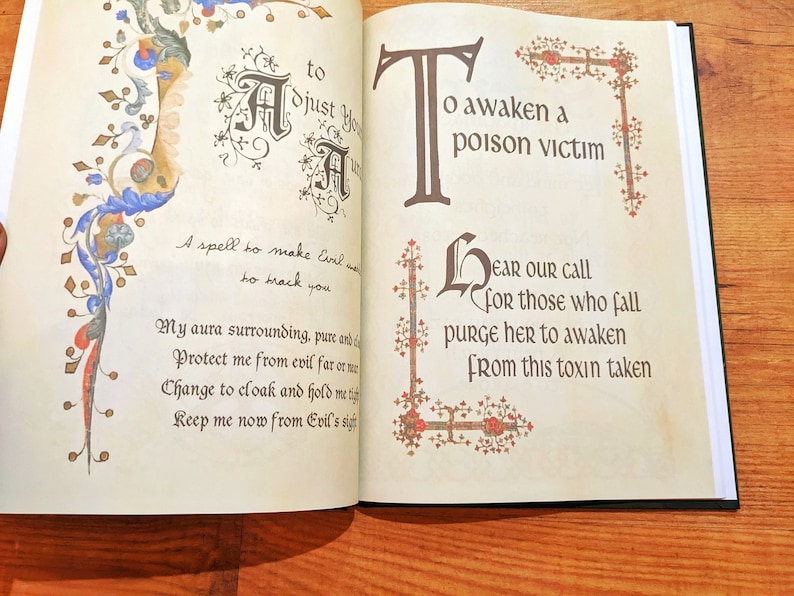 to
Adjust Your
Aura
A spell to make Evil
to track you
My aura surrounding, pure and
Protect me from evil far or near
Change to cloak and hold me tight
Keep me now from Evil's sight
To awaken a
poison victim
Hear our call
for those who fall
purge her to awaken
from this toxin taken